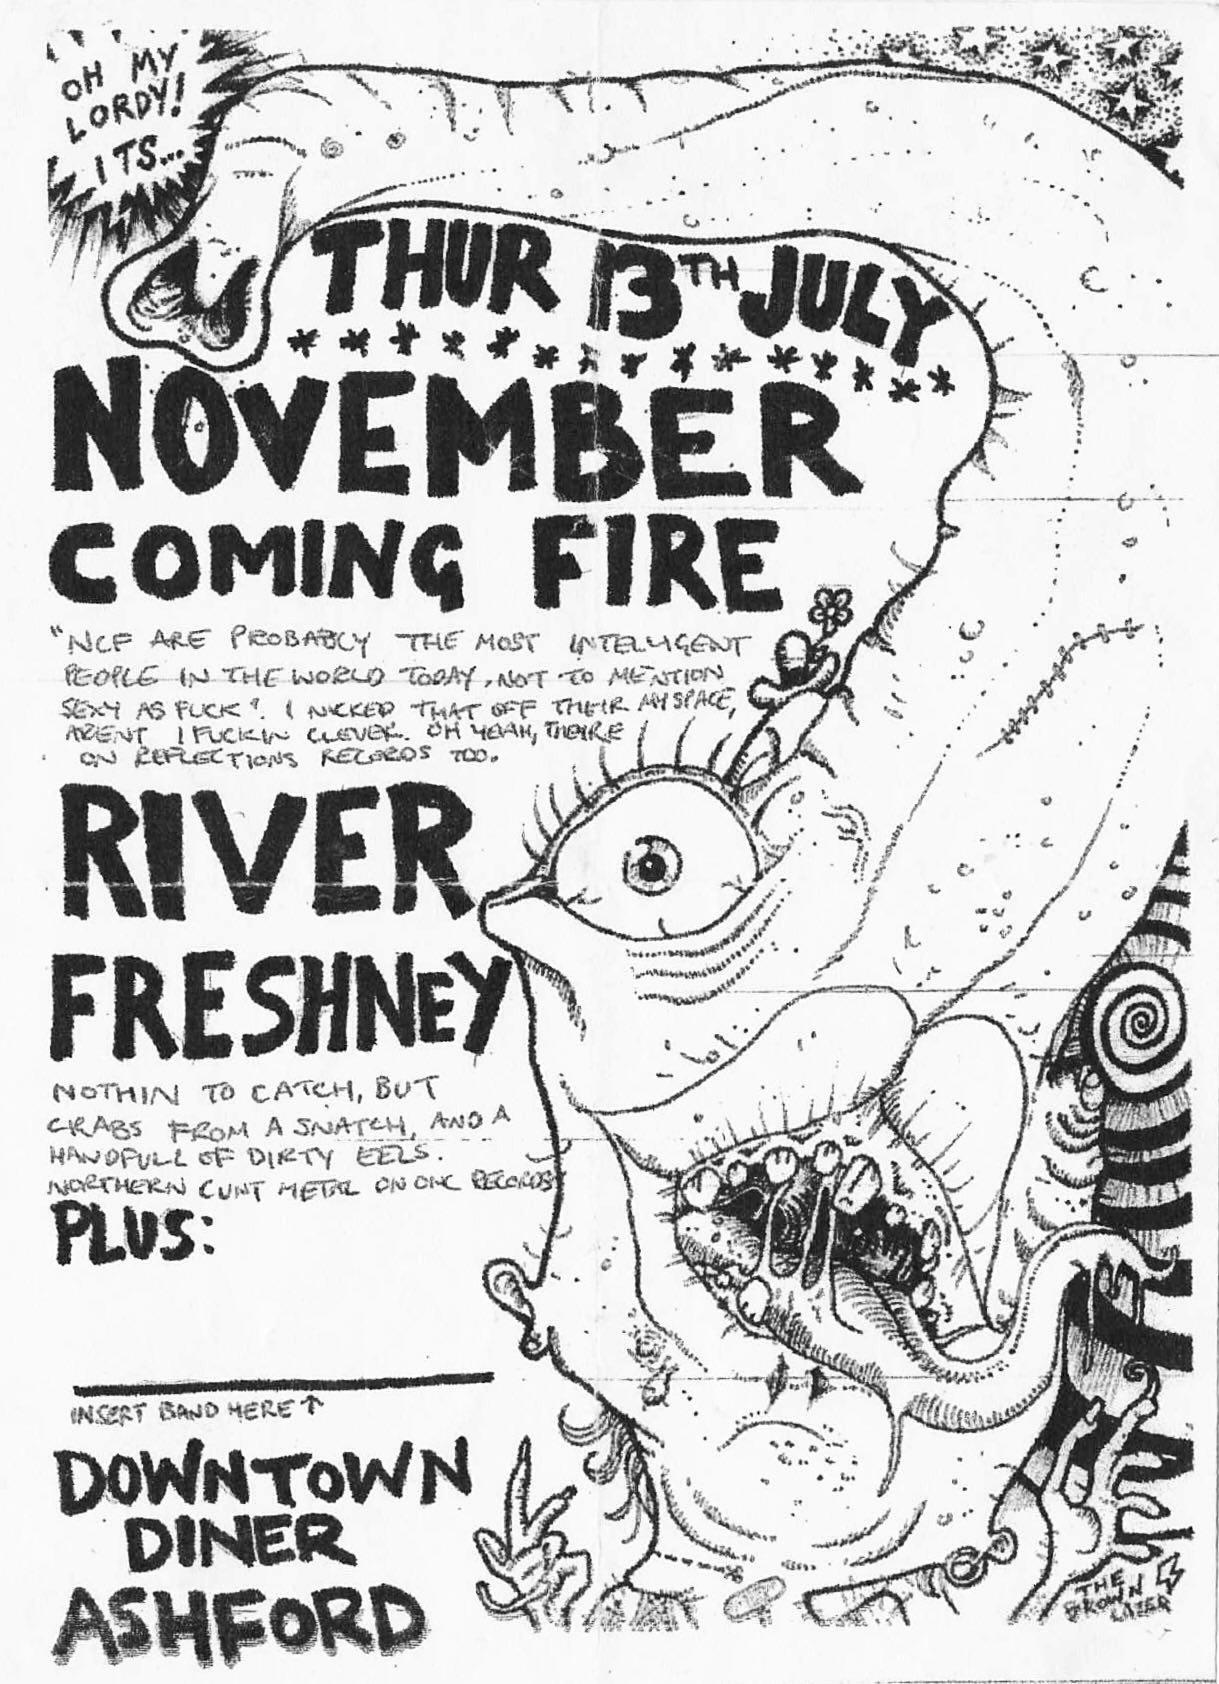 OH MY
LORDY!
ITS...
THUR 13TH JULY
NOVEMBER
COMING FIRE
"NCF ARE PROBABLY THE MOST INTELLIGENT
PEOPLE IN THE WORLD TODAY, NOT TO MENTION
SEXY AS FUCK". I NICKED THAT OFF THEIR MYSPACE,
ARENT I FUCKIN CLEVER. OH YEAH, THEIRE
ON REFLECTIONS RECORDS TOO.
RIVER
FRESHNEY
NOTHIN TO CATCH, BUT
CRABS FROM A SNATCH, AND A
HANDFULL OF DIRTY EELS.
NORTHERN CUNT METAL ON ONC RECORDS
PLUS:
INSERT BAND HERE ↑
DOWNTOWN
DINER
ASHFORD
THE
BROWN
LAZER